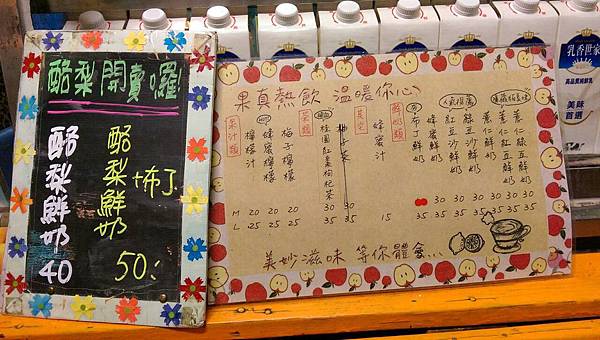 酪梨開賣囉
酪梨鮮奶 40
酪梨鮮奶+布丁 50
果真熱飲 溫暖你心
果汁類
檸檬汁
蜂蜜檸檬
梅子檸檬
茶類
桂圓紅棗枸杞茶
柚子茶
其它
蜂蜜汁
鮮奶類
布丁鮮奶
蜂蜜鮮奶
紅豆沙鮮奶
綠豆沙鮮奶
人氣推薦
薏仁鮮奶
薏仁紅豆鮮奶
薏仁綠豆鮮奶
M 20 20 20 30 30 30 30 30 30 30 30
L 25 25 25 35 35 15 35 35 35 35 35 35 35
美妙滋味 等你體會...
乳香世家
高品質純鮮乳
美味首選